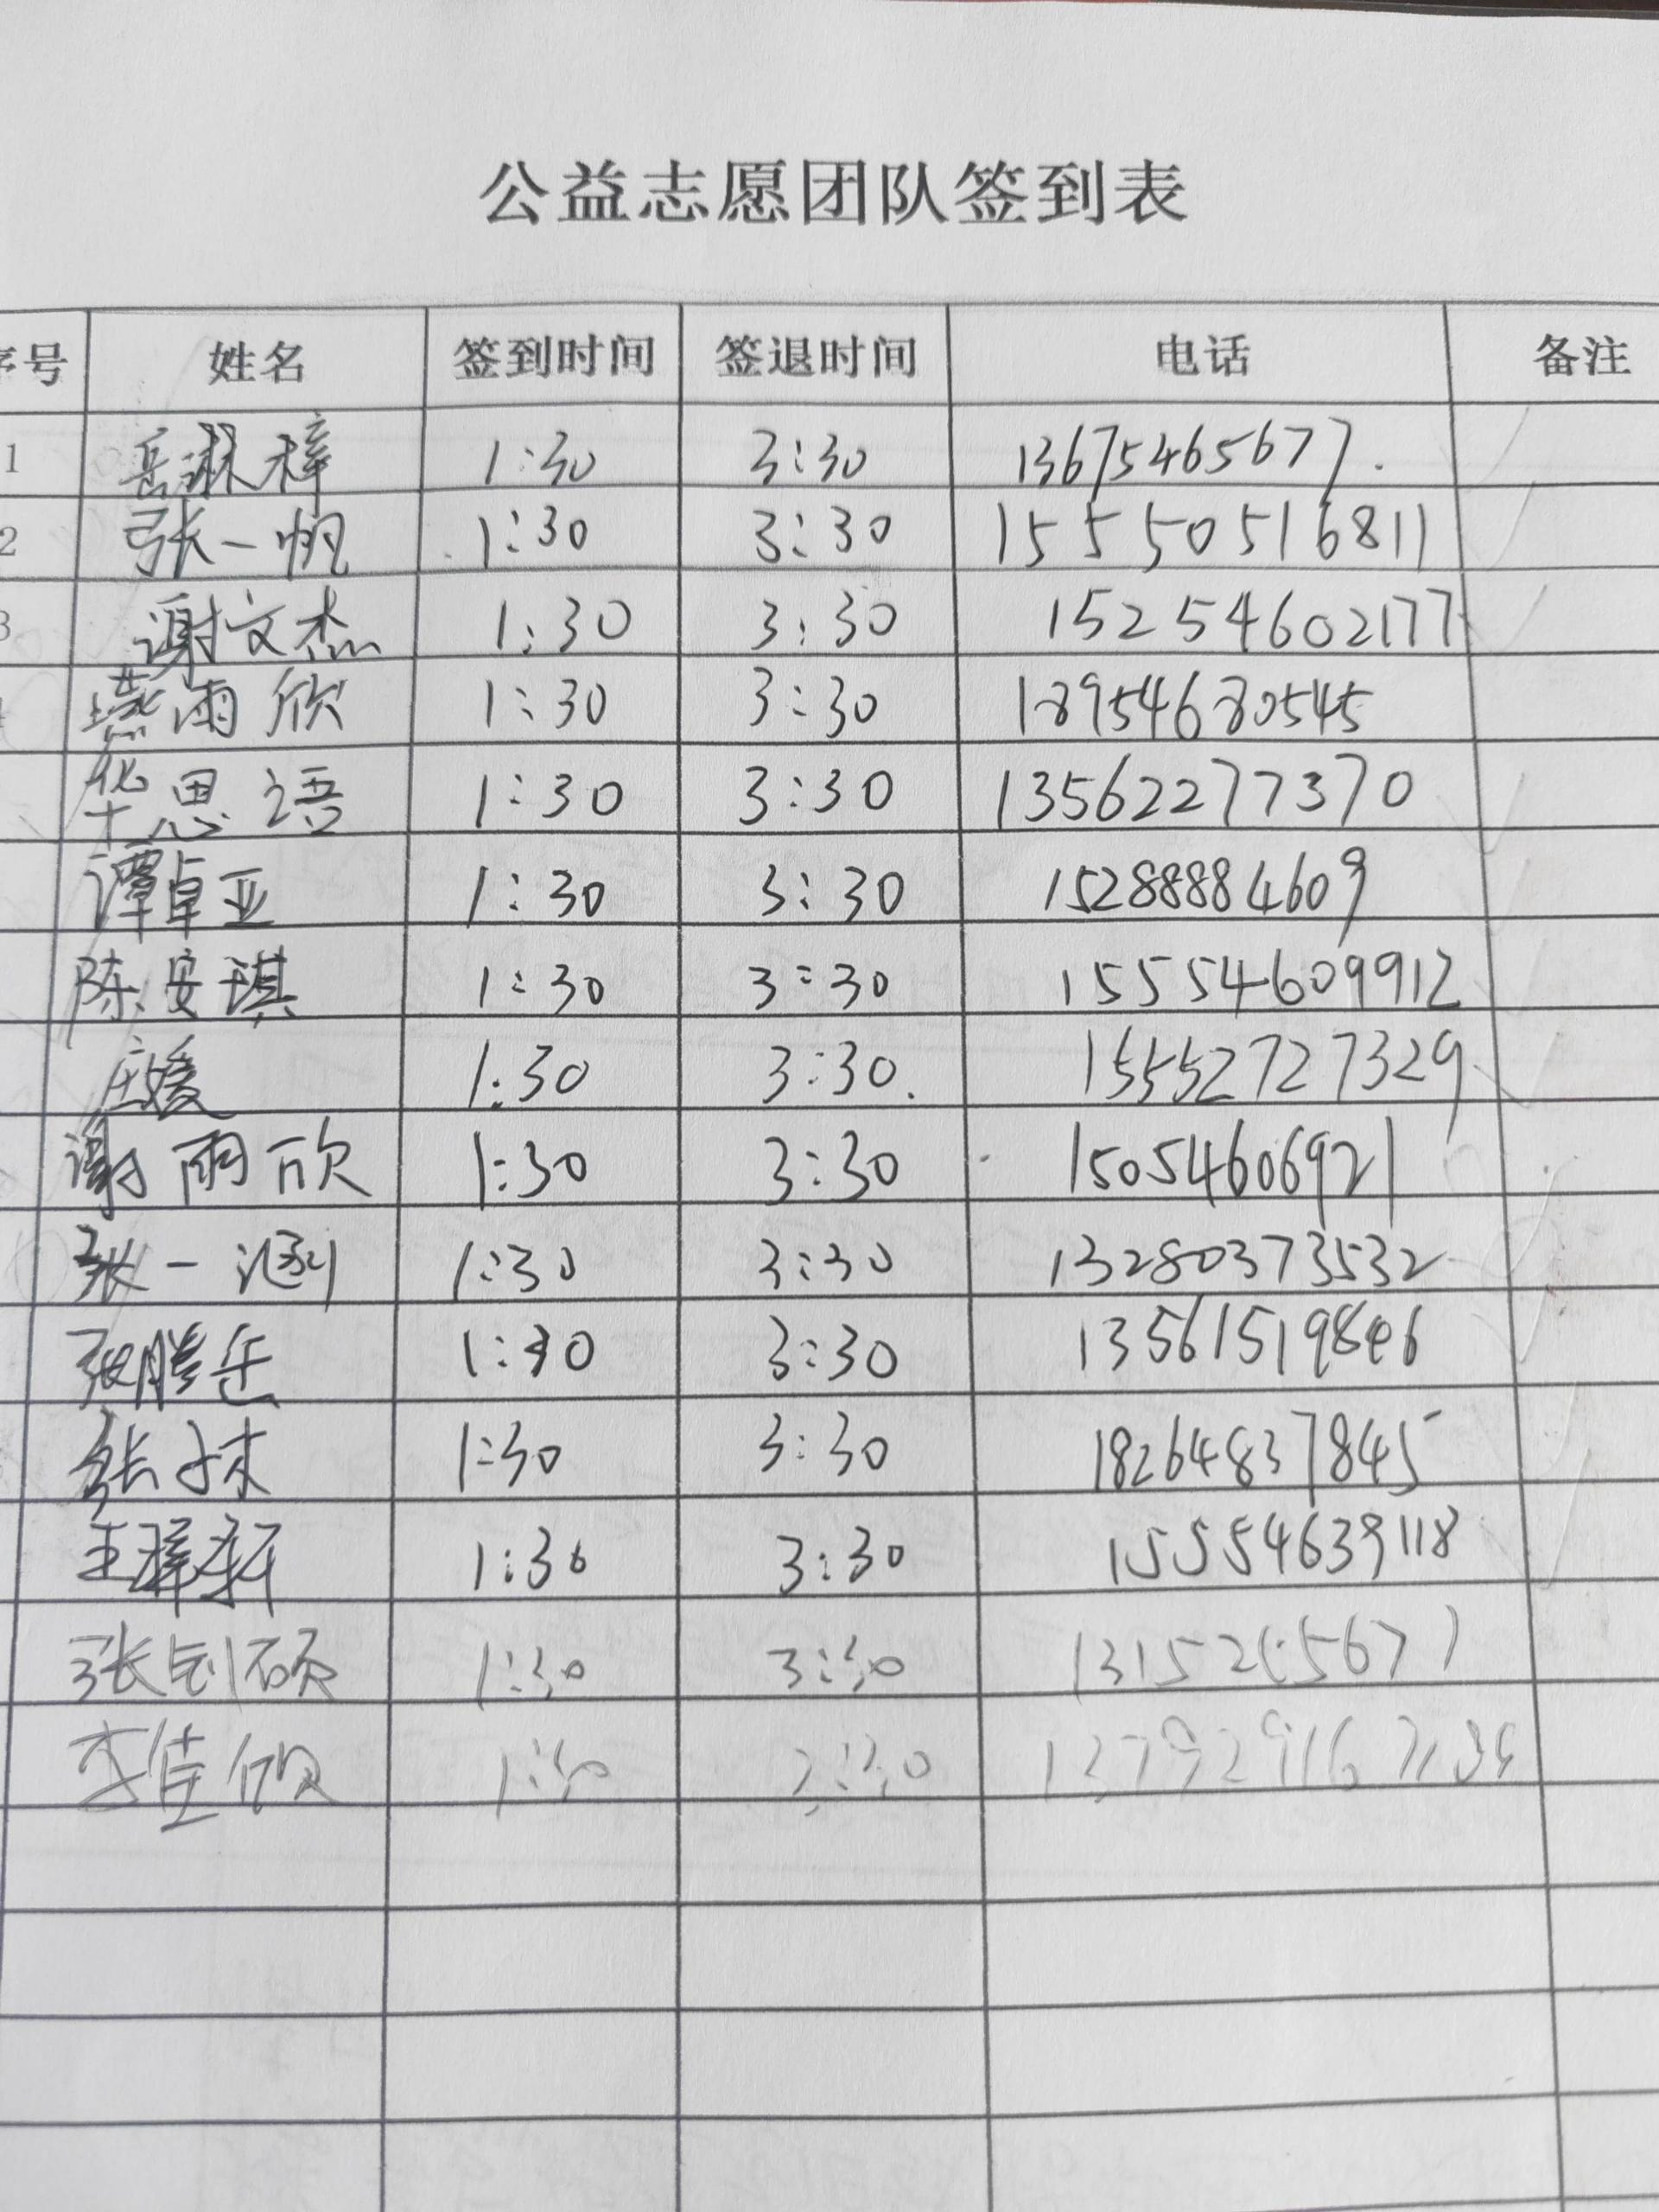 公益志愿团队签到表
序号 姓名 签到时间 签退时间 电话 备注
1 岳琳梓 1:30 3:30 13675465677.
2 张一帆 1:30 3:30 15550516811
3 谢文杰 1:30 3:30 15254602177
燕雨欣 1:30 3:30 18954680545
华思语 1:30 3:30 13562277370
谭卓亚 1:30 3:30 15288884609
陈安琪 1:30 3:30 15554609912
庄媛 1:30 3:30. 15552727329
谢雨欣 1:30 3:30 15054606921
张一涵 1:30 3:30 13280373532
张腾岳 1:30 3:30
张 1:30 3:30 18264837845
王 1:30 3:30 15554639118
张钊硕 1:30 3:30
李佳 1:30 3:30